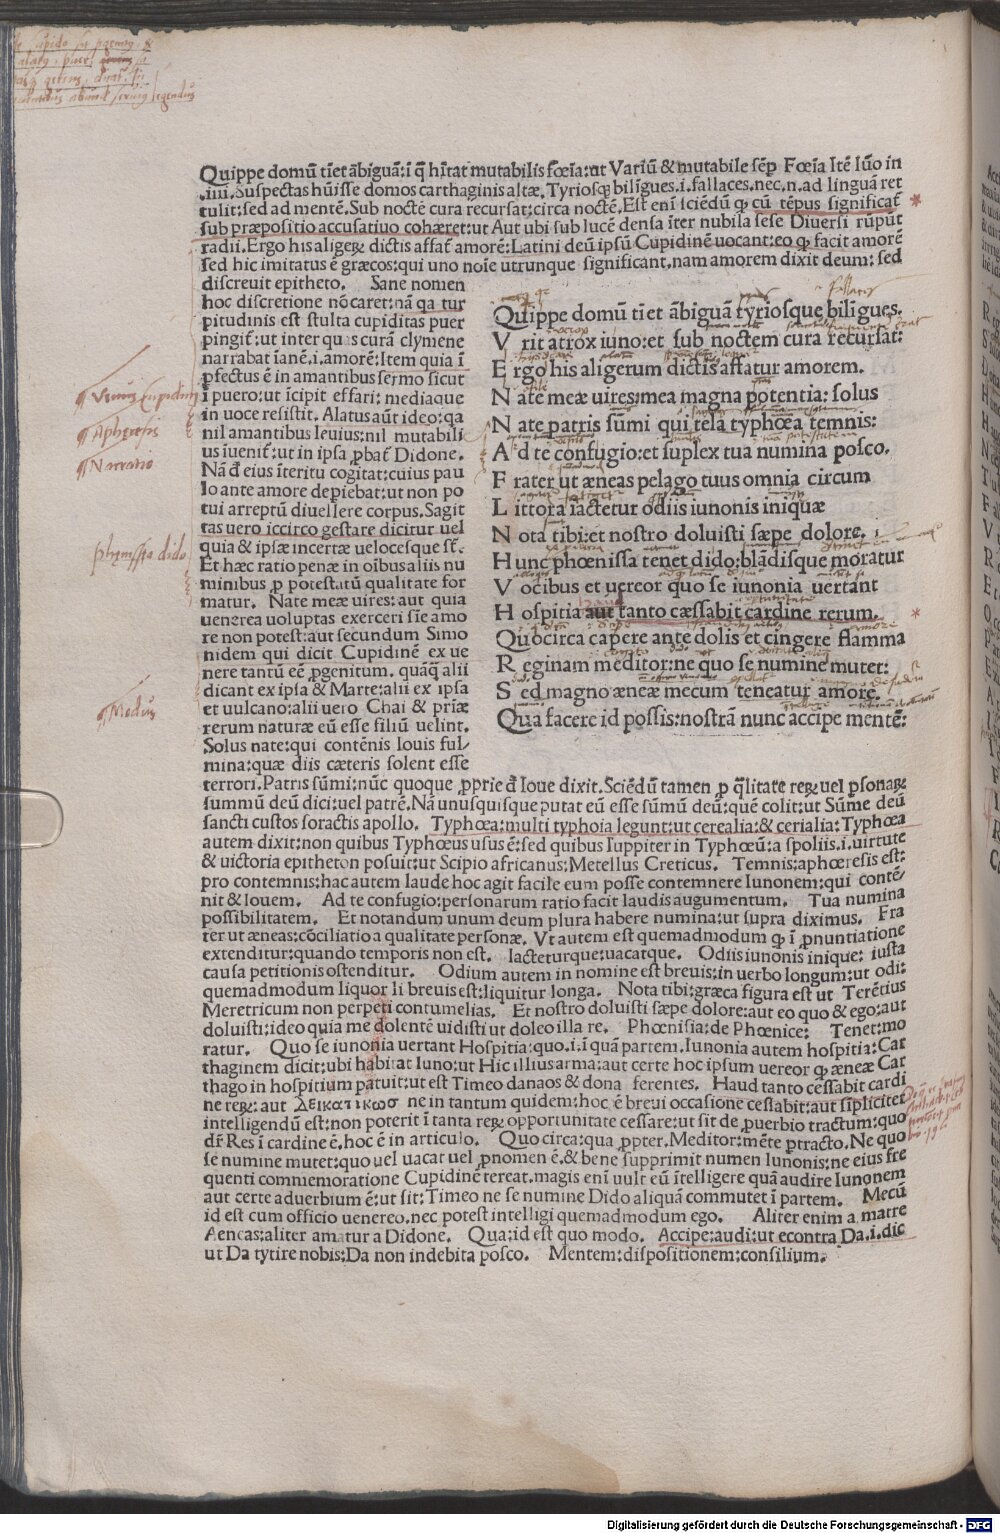 Quippe domū tīet ābiguā:i q̄ hītat mutabilis fœīa:ut Variū & mutabile sēp Fœīa Itē Iūo in
.iiii. Suspectas hūisse domos carthaginis altæ. Tyriosq; bilīgues.i.fallaces.nec.n.ad linguā ret
tulit:sed ad mentē. Sub noctē cura recursat:circa noctē. Est enī sciēdū ꝙ cū tēpus significat̄
sub præpositio accusatiuo cohæret:ut Aut ubi sub lucē densa īter nubila sese Diuersi rūpūt
radii. Ergo his aligeꝝ dictis affat̄ amorē:Latini deū ipsū Cupidinē uocant:eo ꝙ facit amorē
sed hic imitatus ē græcos:qui uno noīe utrunque significant.nam amorem dixit deum: sed
discreuit epitheto. Sane nomen
hoc discretione nō caret:nā qa tur
pitudinis est stulta cupiditas puer
pingit̄:ut inter quas curā clymene
narrabat ianē.i.amorē:Item quia ī
ꝑfectus ē in amantibus sermo sicut
ī puero:ut īcipit effari: mediaque
in uoce resistit. Alatus aūt ideo:qa
nil amantibus leuius:nil mutabili
us īuenit̄:ut in ipsa ꝓbat̄ Didone.
Nā đ eius īteritu cogitat:cuius pau
lo ante amore depiebat:ut non po
tui arreptū diuellere corpus. Sagit
tas uero iccirco gestare dicitur uel
quia & ipsæ incertæ uelocesque st̄.
Et hæc ratio penæ in oībus aliis nu
minibus ꝓ potestatū qualitate for
matur. Nate meæ uires: aut quia
uenerea uoluptas exerceri sīe amo
re non potest:aut secundum Simo
nidem qui dicit Cupidinē ex ue
nere tantū eē ꝓgenitum. quāꝗ alii
dicant ex ipsa & Marte:alii ex ipsa
et uulcano:alii uero Chai & priæ
rerum naturæ eū esse filiū uelint.
Solus nate:qui contēnis Iouis ful/
mina:quæ diis cæteris solent esse
Quippe domū tīet ābiguā tyriosque bilīgues.
Vrit atrox iuno:et sub noctem cura recursat:
Ergo his aligerum dictis affatur amorem.
Nate meæ uires:mea magna potentia: solus
Nate patris sūmi qui tela typhœa temnis:
Ad te confugio:et suplex tua numina posco.
Frater ut æneas pelago tuus omnia circum
Littora iactetur odiis iunonis iniquæ
Nota tibi:et nostro doluisti sæpe dolore.
Hunc phœnissa tenet dido:blādisque moratur
Vocibus et uereor quo se iunonia uertant
Hospitia aut tanto cæssabit cardine rerum.
Quocirca capere ante dolis et cingere flamma
Reginam meditor:ne quo se numine mutet:
Sed magno æneæ mecum teneatur amore.
Qua facere id possis:nostrā nunc accipe mentē:
terrori. Patris sūmi:nūc quoque ꝓprie đ Ioue dixit. Sciēdū tamen ꝓ q̄litate reꝝ uel ꝑsonaꝝ
summū deū dici:uel patrē. Nā unusquisque putat eū esse sūmū deū:quē colit:ut Sūme deū
sancti custos soractis apollo. Typhœa:multi typhoia legunt:ut cerealia:& cerialia:Typhœa
autem dixit:non quibus Typhœus usus ē:sed quibus Iuppiter in Typhœū:a spoliis.i.uirtute
& uictoria epitheton posuit:ut Scipio africanus:Metellus Creticus. Temnis:aphœresis est:
pro contemnis:hac autem laude hoc agit facile eum posse contemnere Iunonem:qui contē/
nit & Iouem. Ad te confugio:personarum ratio facit laudis augumentum. Tua numina
possibilitatem. Et notandum unum deum plura habere numina:ut supra diximus. Fra
ter ut æneas:cōciliatio a qualitate personæ. Vt autem est quemadmodum ꝙ ī ꝓnuntiatione
extenditur:quando temporis non est. Iacteturque:uacatque. Odiis iunonis inique: iusta
causa petitionis ostenditur. Odium autem in nomine est breuis:in uerbo longum:ut odi:
quemadmodum liquor li breuis est:liquitur longa. Nota tibi:græca figura est ut Terētius
Meretricum non perpeti contumelias. Et nostro doluisti sæpe dolore:aut eo quo & ego:aut
doluisti:ideo quia me dolentē uidisti ut doleo illa re. Phœnisia:de Phœnice: Tenet:mo
ratur. Quo se iunonia uertant Hospitia:quo.i.ī quā partem. Iunonia autem hospitia:Car
thaginem dicit:ubi habitat Iuno:ut Hic illius arma:aut certe hoc ipsum uereor ꝙ æneæ Car
thago in hospitium patuit:ut est Timeo danaos & dona ferentes. Haud tanto cessabit cardi
ne reꝝ: aut Δεικατικωσ ne in tantum quidem:hoc ē breui occasione cessabit:aut sīpliciter
intelligendū est:non poterit ī tanta reꝝ opportunitate cessare:ut sit de ꝓuerbio tractum:quo
dr̄ Res ī cardine ē.hoc ē in articulo. Quo circa:qua ꝓpter. Meditor:mēte ꝑtracto. Ne quo
se numine mutet:quo uel uacat uel ꝓnomen ē.& bene supprimit numen Iunonis:ne eius fre
quenti commemoratione Cupidinē terreat.magis enī uult eū ītelligere quā audire Iunonem
aut certe aduerbium ē:ut sit:Timeo ne se numine Dido aliquā commutet ī partem. Mecū
id est cum officio uenereo.nec potest intelligi quemadmodum ego. Aliter enim a matre
Aeneas:aliter amatur a Didone. Qua:id est quo modo. Accipe:audi:ut econtra Da.i.dic
ut Da tytire nobis:Da non indebita posco. Mentem:dispositionem:consilium.
Aphęresis
Narratio
phęnissa dido
Medius
Digitalisierung gefördert durch die Deutsche Forschungsgemeinschaft - DFG